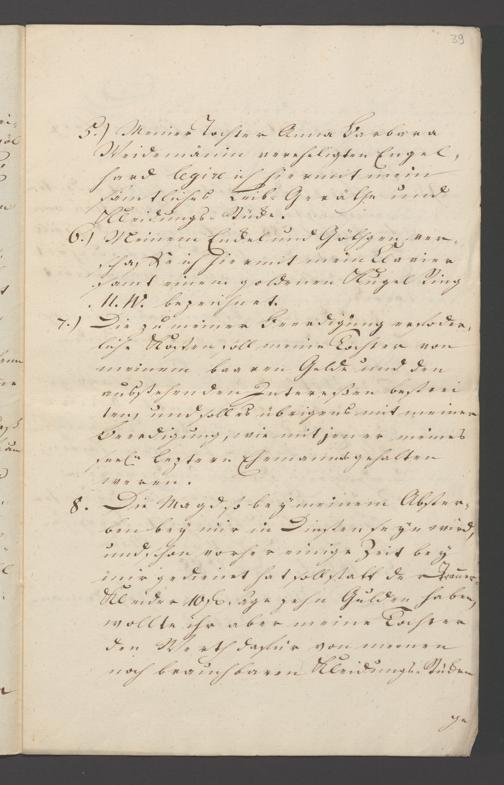 39
5.) Meiner Tochter Anna Barbara
Weidemänin vereheligten Engel-
hard legire ich hiermit mein
sämtliches Leib-Geräthe und
Kleidungs-Stücke.
6.) Meinem Endel und verma-
che ich hiermit mein Clavier
samt einem goldenen Ring
bezeichnet.
7.) Die zu meiner Beerdigung erfoder-
liche Kosten soll meine Tochter von
meinem baaren Gelde und den
ausstehenden Interessen bestrei-
ten, und soll es übrigens mit meiner
Beerdigung, wie mit jener meines
seel. leztern Ehemanns gehalten
weren.
8. Die Magd, so bey meinem Abster-
ben bey mir in Diensten seyn wird,
und schon vorher einige Zeit bey
mir gedienet hat soll statt der Trauer-
Kleider 10 f. sage zehn Gulden haben,
wollte ihr aber meine Tochter
den Werth dafür von meinen
noch brauchbaren Kleidungs-Stücken